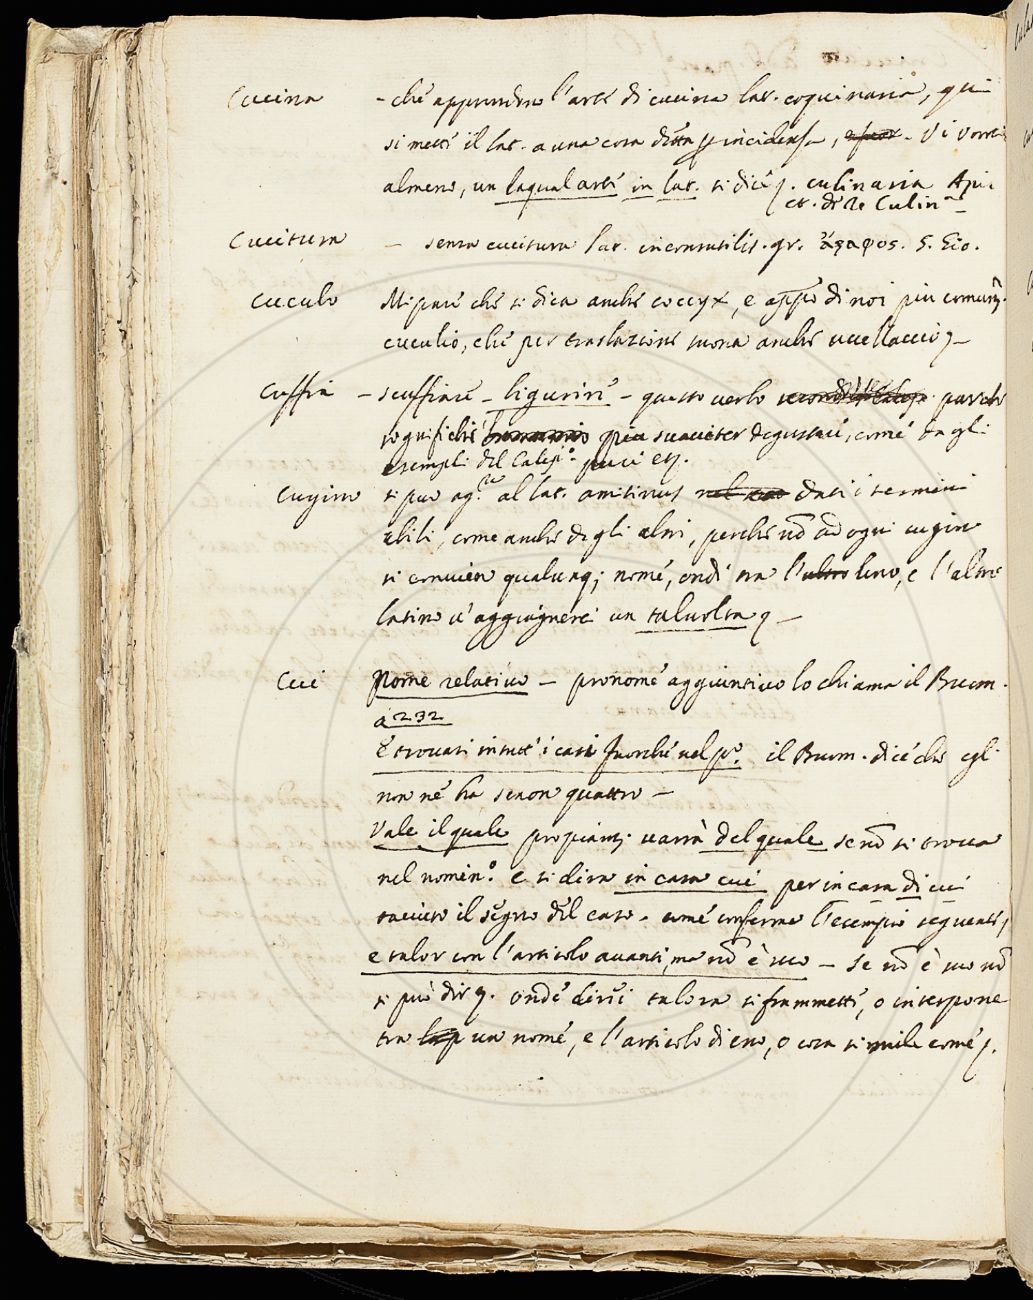 Cucina - che apprendono l'arte di cucina lat. coquinaria, qui
si mette il lat. a una cosa detta p incidensa, Vi vorrei
almeno, un laqual arte in lat. si dice p. culinaria Apic
et. de re Culin
Cucitura - senza cucitura lat. inconsutilis. gr. ἄραφος. S. Gio.
Cuculo Mi pare che si dica anche coccyx, e app.o di noi piu comun
cuculio, che per traslazione suona anche uccellaccio
Cuffia - scuffiare - ligurire - questo verbo parche
significhi suaviter degustare, come dagli
esempli del Calep.o
Cugino si puo al lat. amitinus dati i termini
abili, come anche degli altri, perche nō ad ogni cugino
si convien qualunq; nome, onde tra l' uno, e l'altro
latino v'aggiugnerei un talvolta
Cui Nome relativo - pronome aggiuntivo lo chiama il Buom.
a 232
E trovasi in tutt' i casi fuorche nel p.o il Buom. dice che egli
non ne ha senon quattro -
Vale il quale propiam; varrà del quale se nō si trova
nel nomin.o e si dira in casa cui per in casa di cui
taciuto il segno del caso - come conferma l'esempio seguente
e talor con l'articolo avanti, ma nō è suo - Se nō è suo nō
si può dir onde direi talora si frammette, o interpone
tra un nome, e l'articolo di esso, o cosa simile come